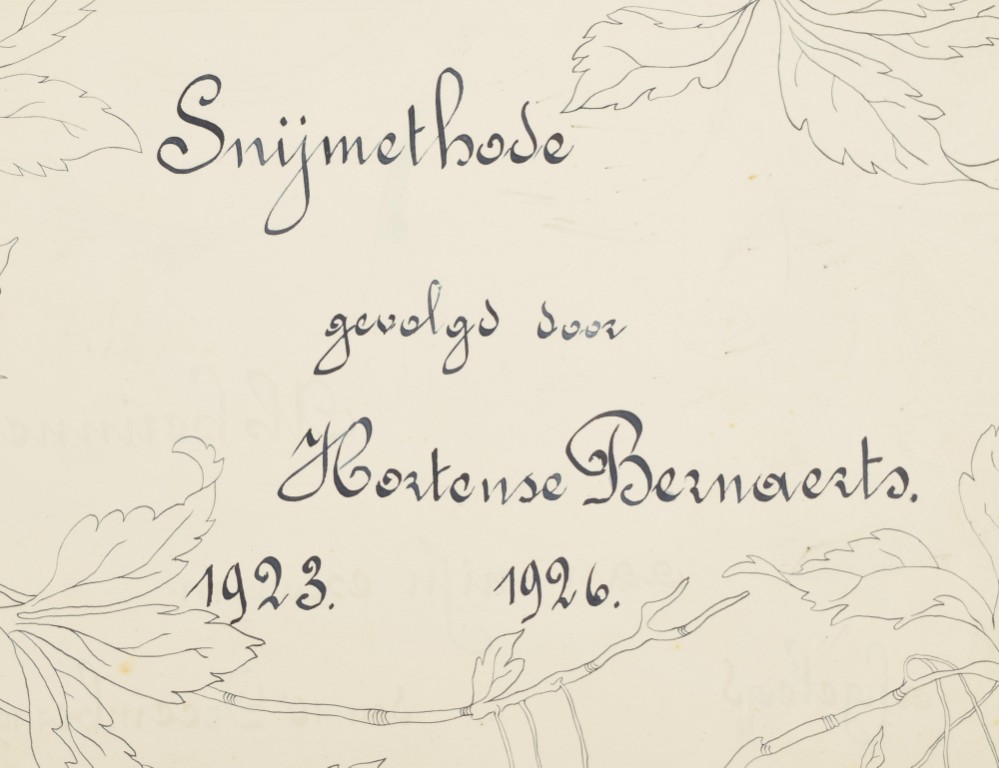 Snijmethode
gevolgd door
Hortense Bernaerts.
1923. 1926.